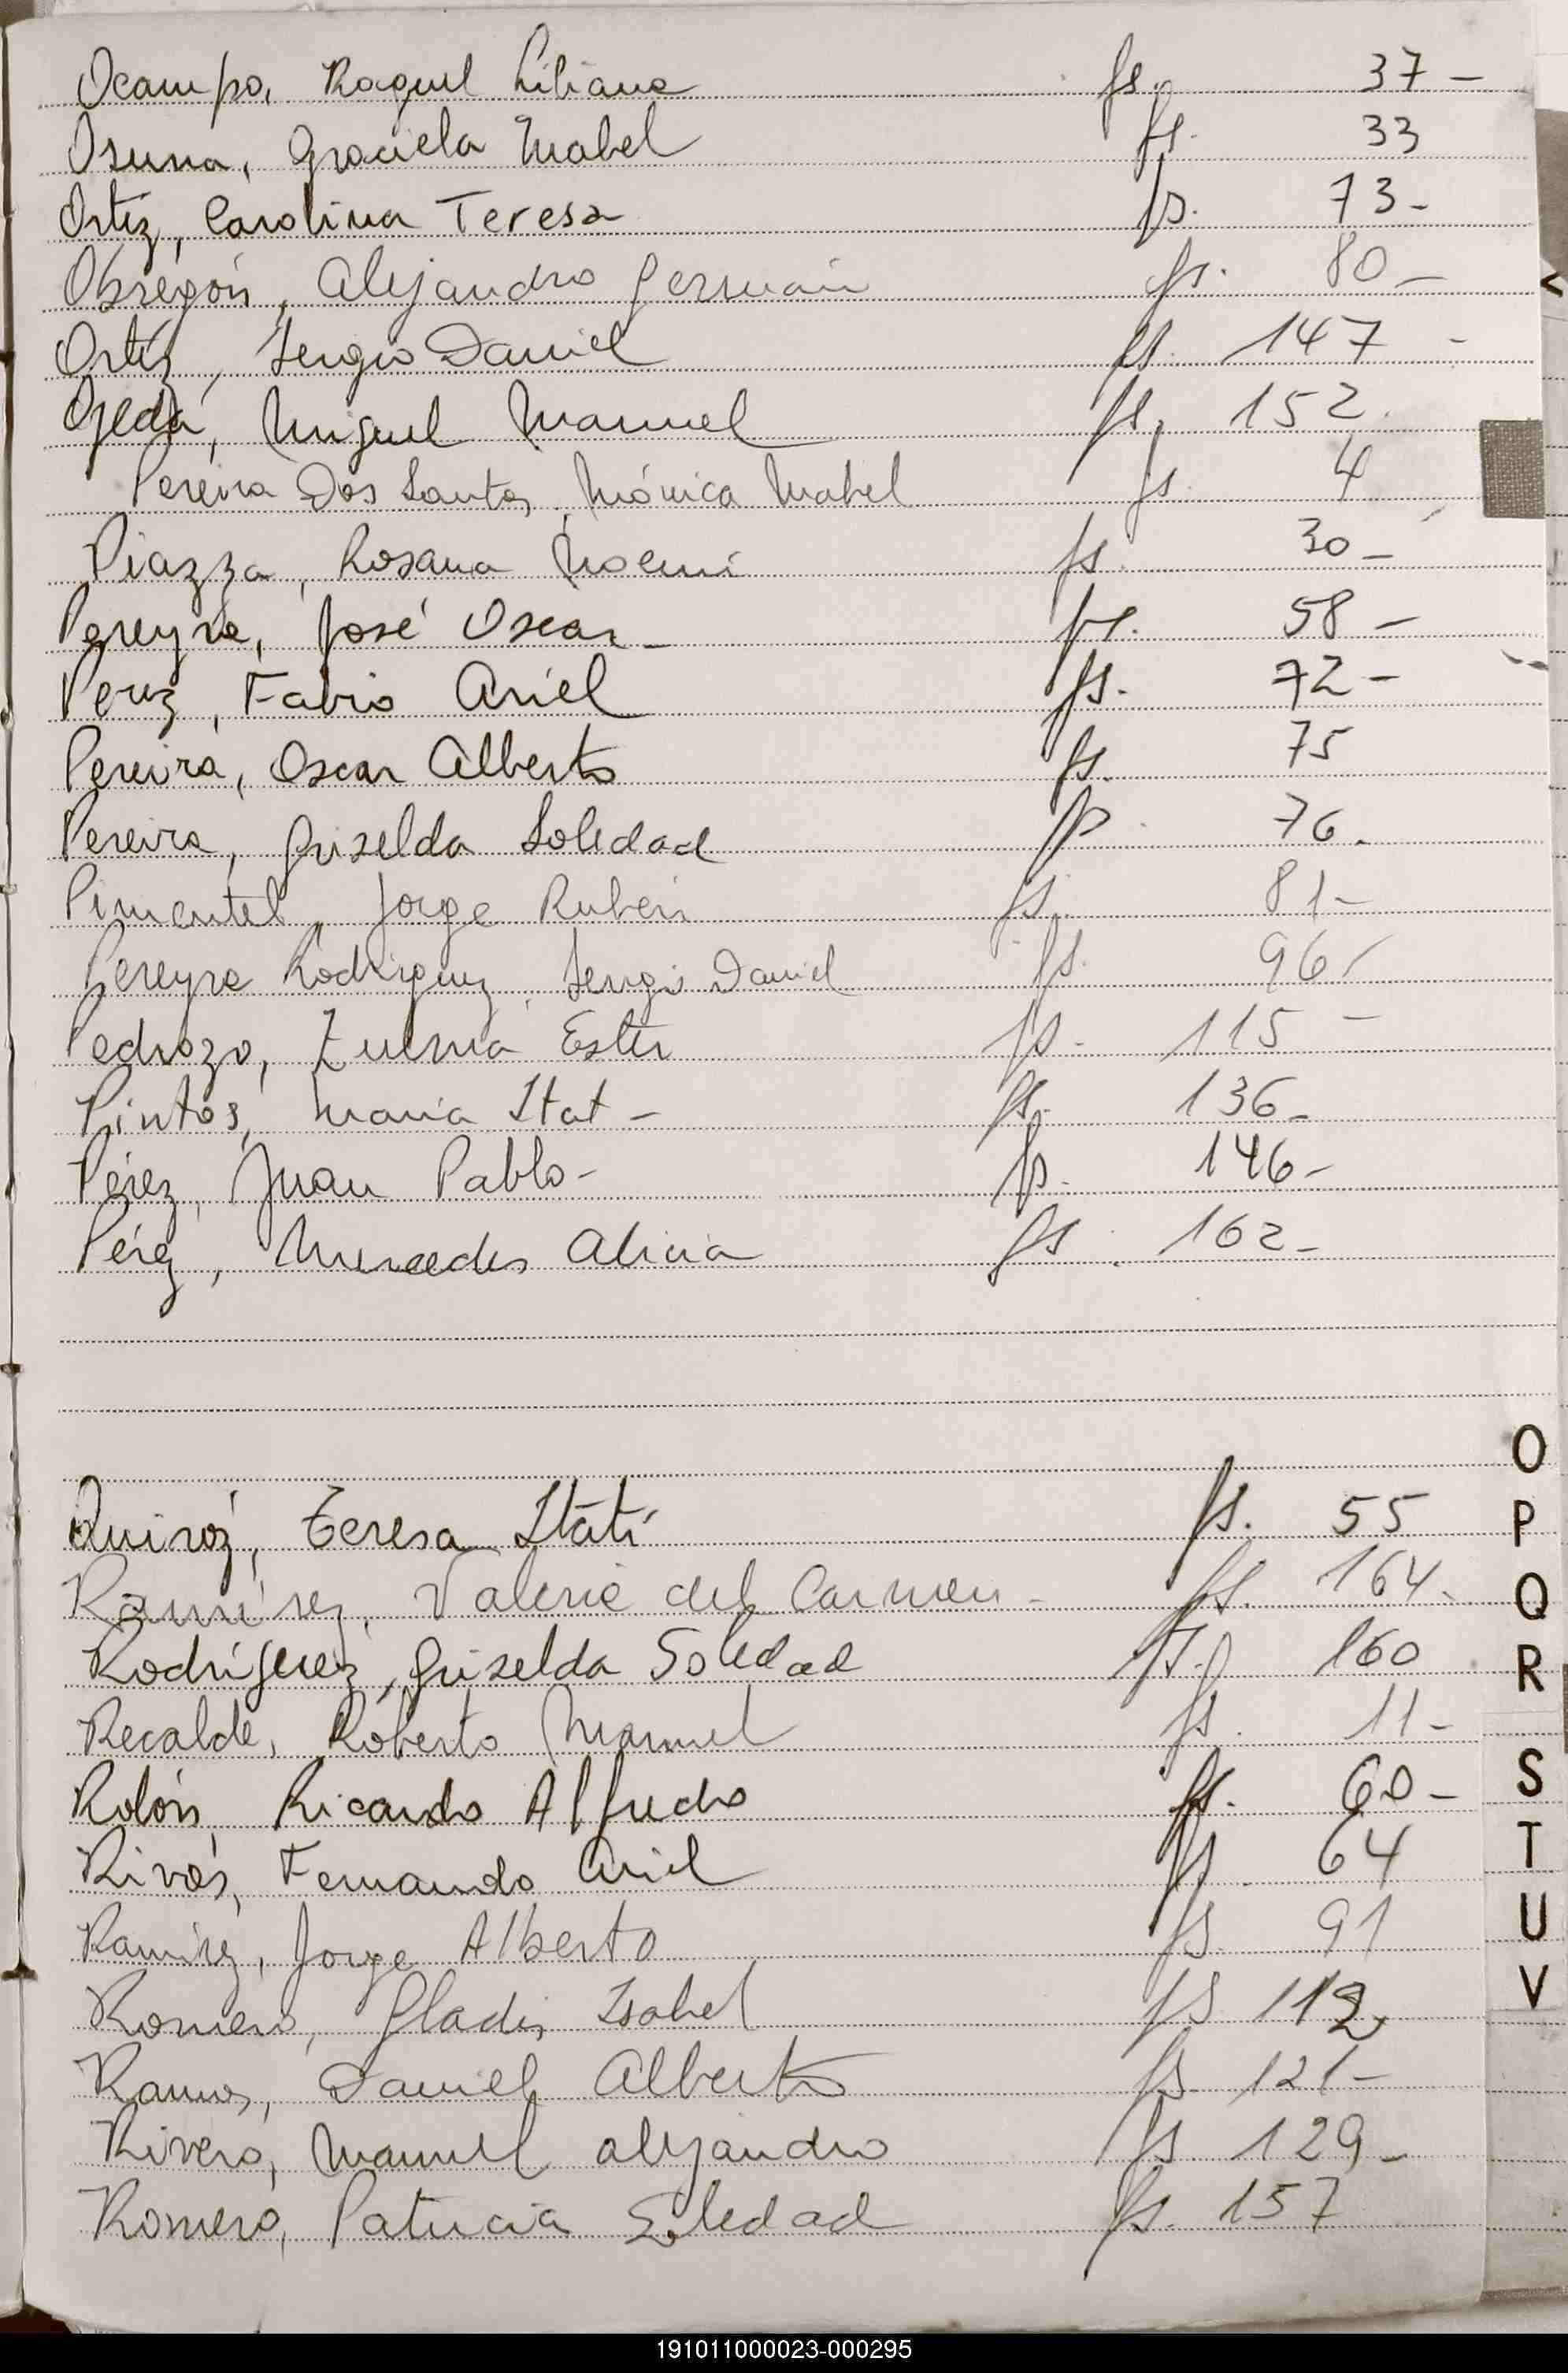 Ocampo, Raquel Liliana fs. 37 -
Osuna, Graciela Mabel fs. 33
Ortíz, Carolina Teresa fs. 73 -
Obregón, Alejandro Germán fs. 80 -
Ortíz, Sergio Daniel fs. 147 -
Ojeda, Miguel Manuel fs. 152.
Pereira Dos Santos, Mónica Mabel fs. 4
Piazza, Rosana Noemí fs. 30 -
Pereyra, José Oscar - fs. 58 -
Perez, Fabio Ariel fs. 72 -
Pereira, Oscar Alberto fs. 75
Pereira, Griselda Soledad fs. 76.
Pimentel, Jorge Rubén fs. 81 -
Pereyra Rodriguez, Sergio Daniel fs. 96 -
Pedrozo, Zulma Ester fs. 115 -
Pintos, María Itat - fs. 136 -
Pérez, Juan Pablo - fs. 146 -
Pérez, Mercedes Alicia fs. 162 -
Quiroz, Teresa Itatí fs. 55
Ramírez, Valeria del Carmen - fs. 164 -
Rodríguez, Griselda Soledad fs. 160
Recalde, Roberto Manuel fs. 11 -
Rolón, Ricardo Alfredo fs. 60 -
Rivas, Fernando Ariel fs. 64
Ramírez, Jorge Alberto fs. 91
Romero, Gladis Isabel fs. 112
Ramos, Daniel Alberto fs. 121 -
Rivero, Manuel Alejandro fs. 129 -
Romero, Patricia Soledad fs. 157
O
P
Q
R
S
T
U
V
191011000023-000295